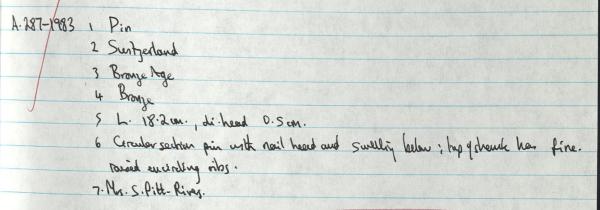 A.287-1983 1 Pin
2 Switzerland
3 Bronze Age
4 Bronze
5 L. 18.2cm., di. head 0.5cm.
6 Circular section pin with nail head and swelling below; top of shank has fine
raised encircling ribs.
7. Mrs. S. Pitt-Rivers.